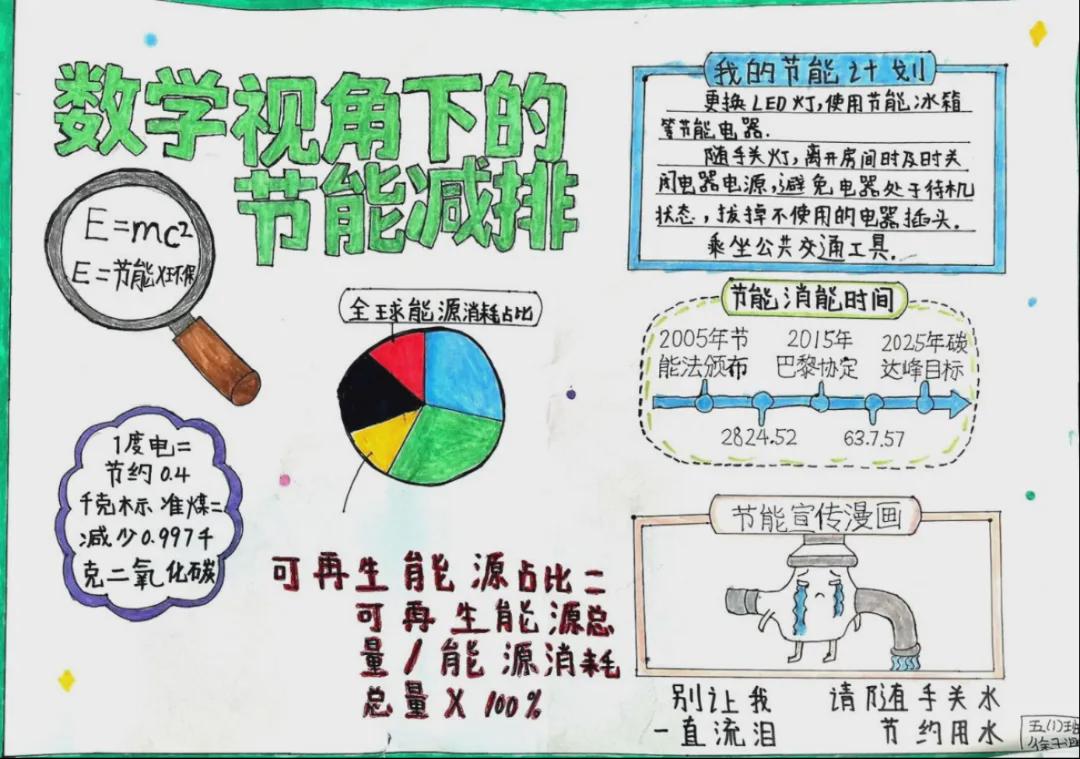 数学视角下的
节能减排
E=mc²
E=节能x环保
全球能源消耗占比
1度电=
节约0.4
千克标准煤=
减少0.997千
克二氧化碳
可再生能源占比=
可再生能源总
量/能源消耗
总量X100%
我的节能计划
更换LED灯,使用节能冰箱
等节能电器.
随手关灯,离开房间时及时关
闭电器电源,避免电器处于待机
状态,拔掉不使用的电器插头.
乘坐公共交通工具.
节能消能时间
2005年节
能法颁布
2015年
巴黎协定
2025年碳
达峰目标
2824.52
63.7.57
节能宣传漫画
别让我
一直流泪
请随手关水
节约用水
五(1)班
徐